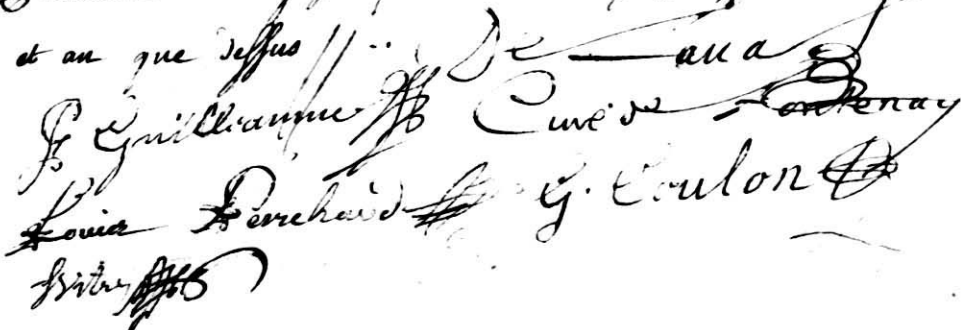 et an que dessus De Lava
P Guilliaume Curé de Fontenay
Louis Perrehaid G. Coulon